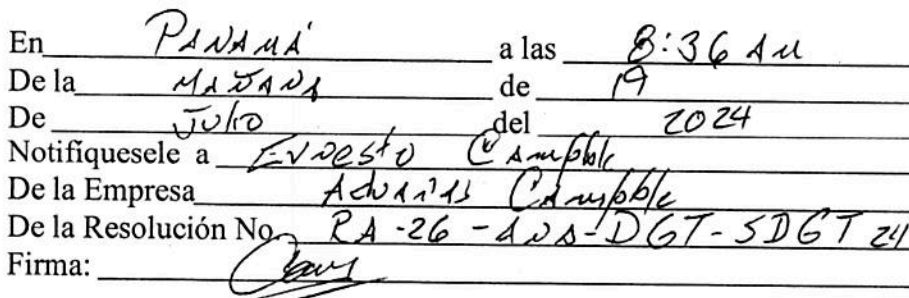 En PANAMÁ a las 8:36 AM
De la MAÑANA de 19
De JULIO del 2024
Notifíquesele a Ernesto
De la Empresa Aduanas
De la Resolución No. RA-26-ANA-DGT-SDGT 24
Firma: